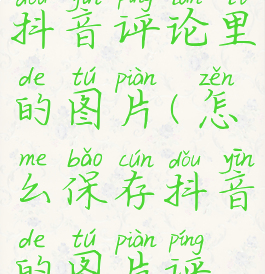 dǒu yīn píng lùn lǐ
抖音评论里
de tú piàn zěn
的图片(怎
me bǎo cún dǒu yīn
么保存抖音
de tú piàn píng
的图片评